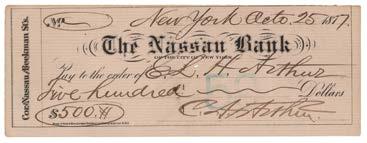 New York Octo. 25 1877.
Cor. Nassau & Beekman Sts.
The Nassau Bank
OF THE CITY OF NEW YORK
Pay to the order of C. L. H. Arthur
Five hundred Dollars
$500.
C. A. Arthur